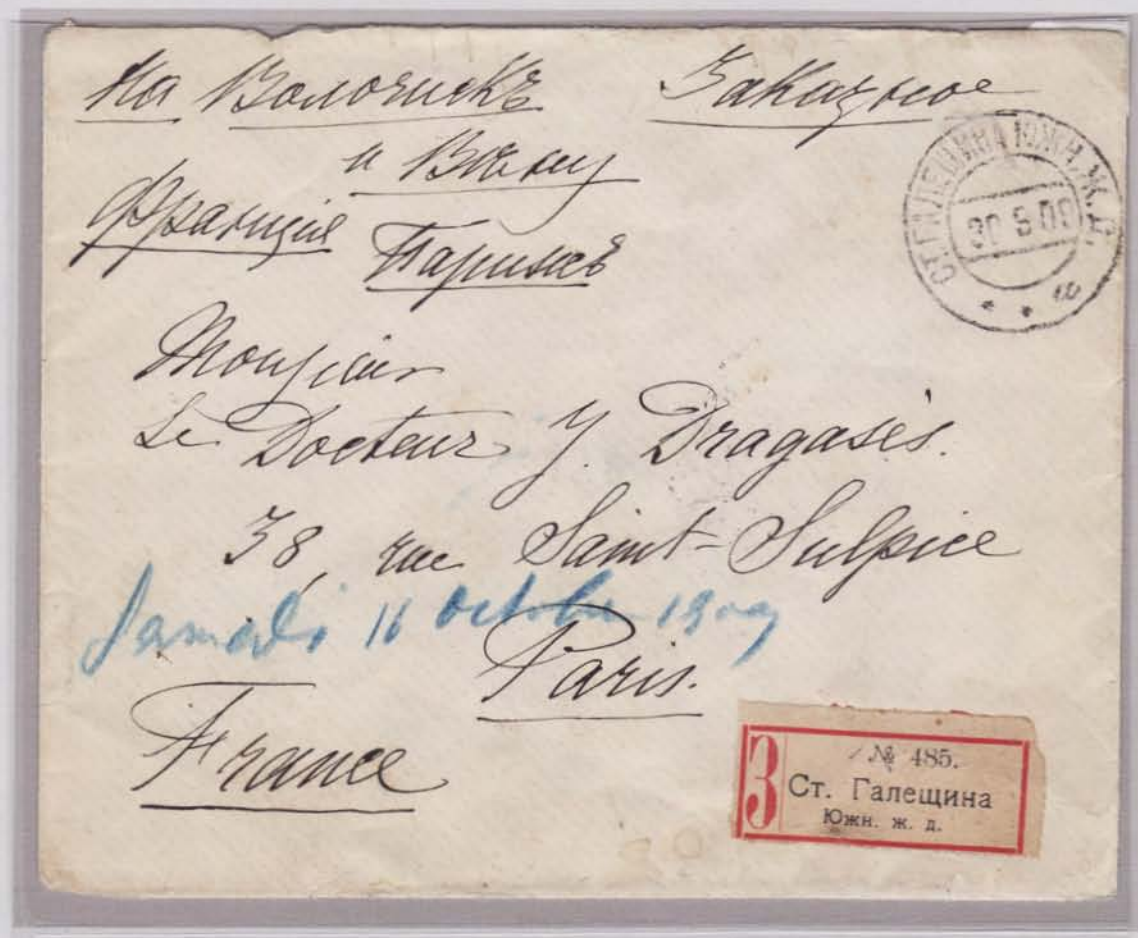 На Волочискъ Заказное
и Вѣну
Франція Парижъ
СТ. ГАЛЕЩИНА ЮЖН. Ж. Д.
30 9 09
Monsieur
Le Docteur J. Dragasès.
38, rue Saint-Sulpice
Samedi 16 octobre 1909
Paris.
France
З
№ 485.
Ст. Галещина
Южн. ж. д.